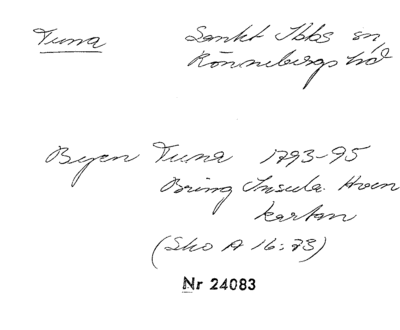 Tuna Sankt Ibbs sn,
Rönnebergs hd
Byen Tuna 1793-95
Bring Insula Hven
kartan
(Sko A 16:73)
Nr 24083